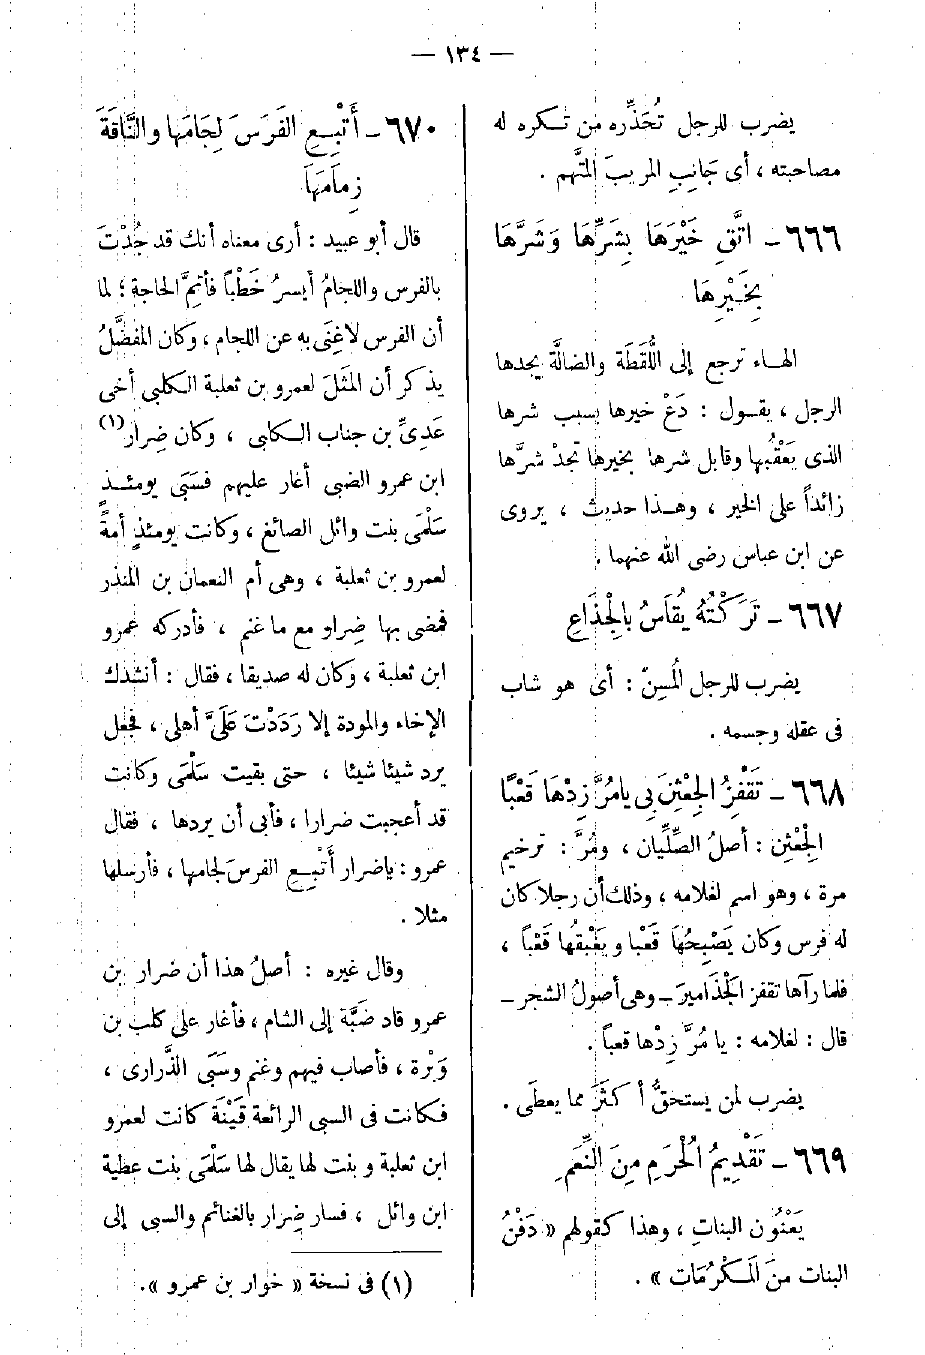 — ١٣٤ —
يضرب للرجل تُحَذِّره من تـكره له
مصاحبته ، أى جَانِبِ المريبَ المتَّهم .
٦٦٦ – اتَّقِ خَيْرَهَا بِشَرِّهَا وَشَرَّهَا
بِخَـيْرِهَا
الهـاء ترجع إلى اللُّقَطَة والضالَّة يجدها
الرجل ، يقـول : دَعْ خيرها بسبب شرها
الذى يَعْقُبها وقابل شرها بخيرها تجدْ شرَّها
زائداً على الخير ، وهـذا حديث ، يروى
عن ابن عباس رضى الله عنهما .
٦٦٧ – تَرَكْتُهُ يُقَاسُ بِالْجِذَاعِ
يضرب للرجل الْمُسِنّ : أى هو شاب
فى عقله وجسمه .
٦٦٨ – تَقْفِزُ الْجِعْثِنَ بِى يامُرَّ زِدْهَا قَعْبًا
الْجِعْثِن : أصلُ الصِّلِّيان ، ومُرَّ : ترخيم
مرة ، وهو اسم لغلامه ، وذلك أن رجلا كان
له فرس وكان يَصْبِحُهَا قَعْبا ويَغْبقُها قَعْباً ،
فلما رآها تقفز الْجَذَاميرَ – وهى أصولُ الشجر –
قال : لغلامه : يا مُرَّ زِدْها قعباً .
يضرب لمن يستحقُّ أ كثَرَ مما يعطَى .
٦٦٩ – تَقْدِيمُ الْحُرَمِ مِنَ النِّعَمِ
يَعْنُون البناتِ ، وهذا كقولهم « دَفْنُ
البنات منَ الْمَـكْرُمَات » .
٦٧٠ – أَتْبِـعِ الفَرَسَ لِجَامَها والنَّاقَةَ
زِمامَهاَ
قال أبو عبيد : أرى معناه أنك قد جُدْتَ
بالفرس واللجامُ أيسرُ خَطْباً فأتِمَّ الحاجة ؛ لما
أن الفرس لاغِنَى به عن اللجام ، وكان المفضَّلُ
يذكر أن المَثَلَ لعمرو بن ثعلبة الـكلبى أخى
عَدِىِّ بن جناب الـكلبى ، وكان ضِرار(١)
ابن عمرو الضبى أغار عليهم فسَبَى يومئـذٍ
سَلْمَى بنت وائل الصائغ ، وكانت يومئذٍ أمَةً
لعمرو بن ثعلبة ، وهى أم النعمان بن المنذر
فمضى بها ضِرار مع ما غنم ، فأدركه عمرو
ابن ثعلبة ، وكان له صديقا ، فقال : أنشدك
الإخاء والمودة إلا رَدَدْتَ عَلَىَّ أهلى ، فجعل
يرد شيئا شيئا ، حتى بقيت سَلْمَى وكانت
قد أعجبت ضرارا ، فأبى أن يردها ، فقال
عمرو : ياضرار أَتْبِـعِ الفرسَ لجامها ، فأرسلها
مثلا .
وقال غيره : أصلُ هذا أن ضرار بن
عمرو قاد ضَبَّة إلى الشام ، فأغار على كلب بن
وَبْرة ، فأصاب فيهم وغنم وسَبَى الذَّرارى ،
فـكانت فى السبى الرائعة قَيْنَة كانت لعمرو
ابن ثعلبة وبنت لها يقال لها سَلْمَى بنت عطية
ابن وائل ، فسار ضِرار بالغنائم والسبى إلى
(١) فى نسخة « خوار بن عمرو » .